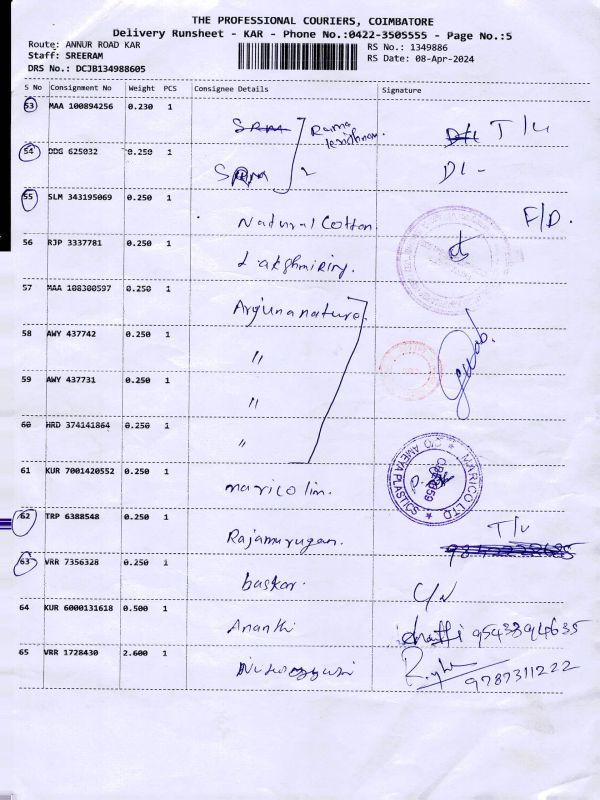 THE PROFESSIONAL COURIERS, COIMBATORE
Delivery Runsheet - KAR - Phone No.:0422-3505555 - Page No.:5
Route: ANNUR ROAD KAR
RS No.: 1349886
Staff: SREERAM
RS Date: 08-Apr-2024
DRS No.: DCJB134988605
S No Consignment No Weight PCS Consignee Details Signature
53 MAA 100894256 0.230 1
SRM Rama T/L
54 DDG 625032 0.250 1
SRM DL-
55 SLM 343195069 0.250 1
Natural Cotton. F/D.
56 RJP 3337781 0.250 1
Lakshmiring.
57 MAA 108300597 0.250 1
Arjuna natural
58 AWY 437742 0.250 1
"
59 AWY 437731 0.250 1
"
60 HRD 374141864 0.250 1
"
61 KUR 7001420552 0.250 1
marico lim. MARICO LTD * C/O AMEYA PLASTICS *
62 TRP 6388548 0.250 1
Rajamurugan. T/L
63 VRR 7356328 0.250 1
baskar. C/N
64 KUR 6000131618 0.500 1
Ananthi 9543894635
65 VRR 1728430 2.600 1
9787311222